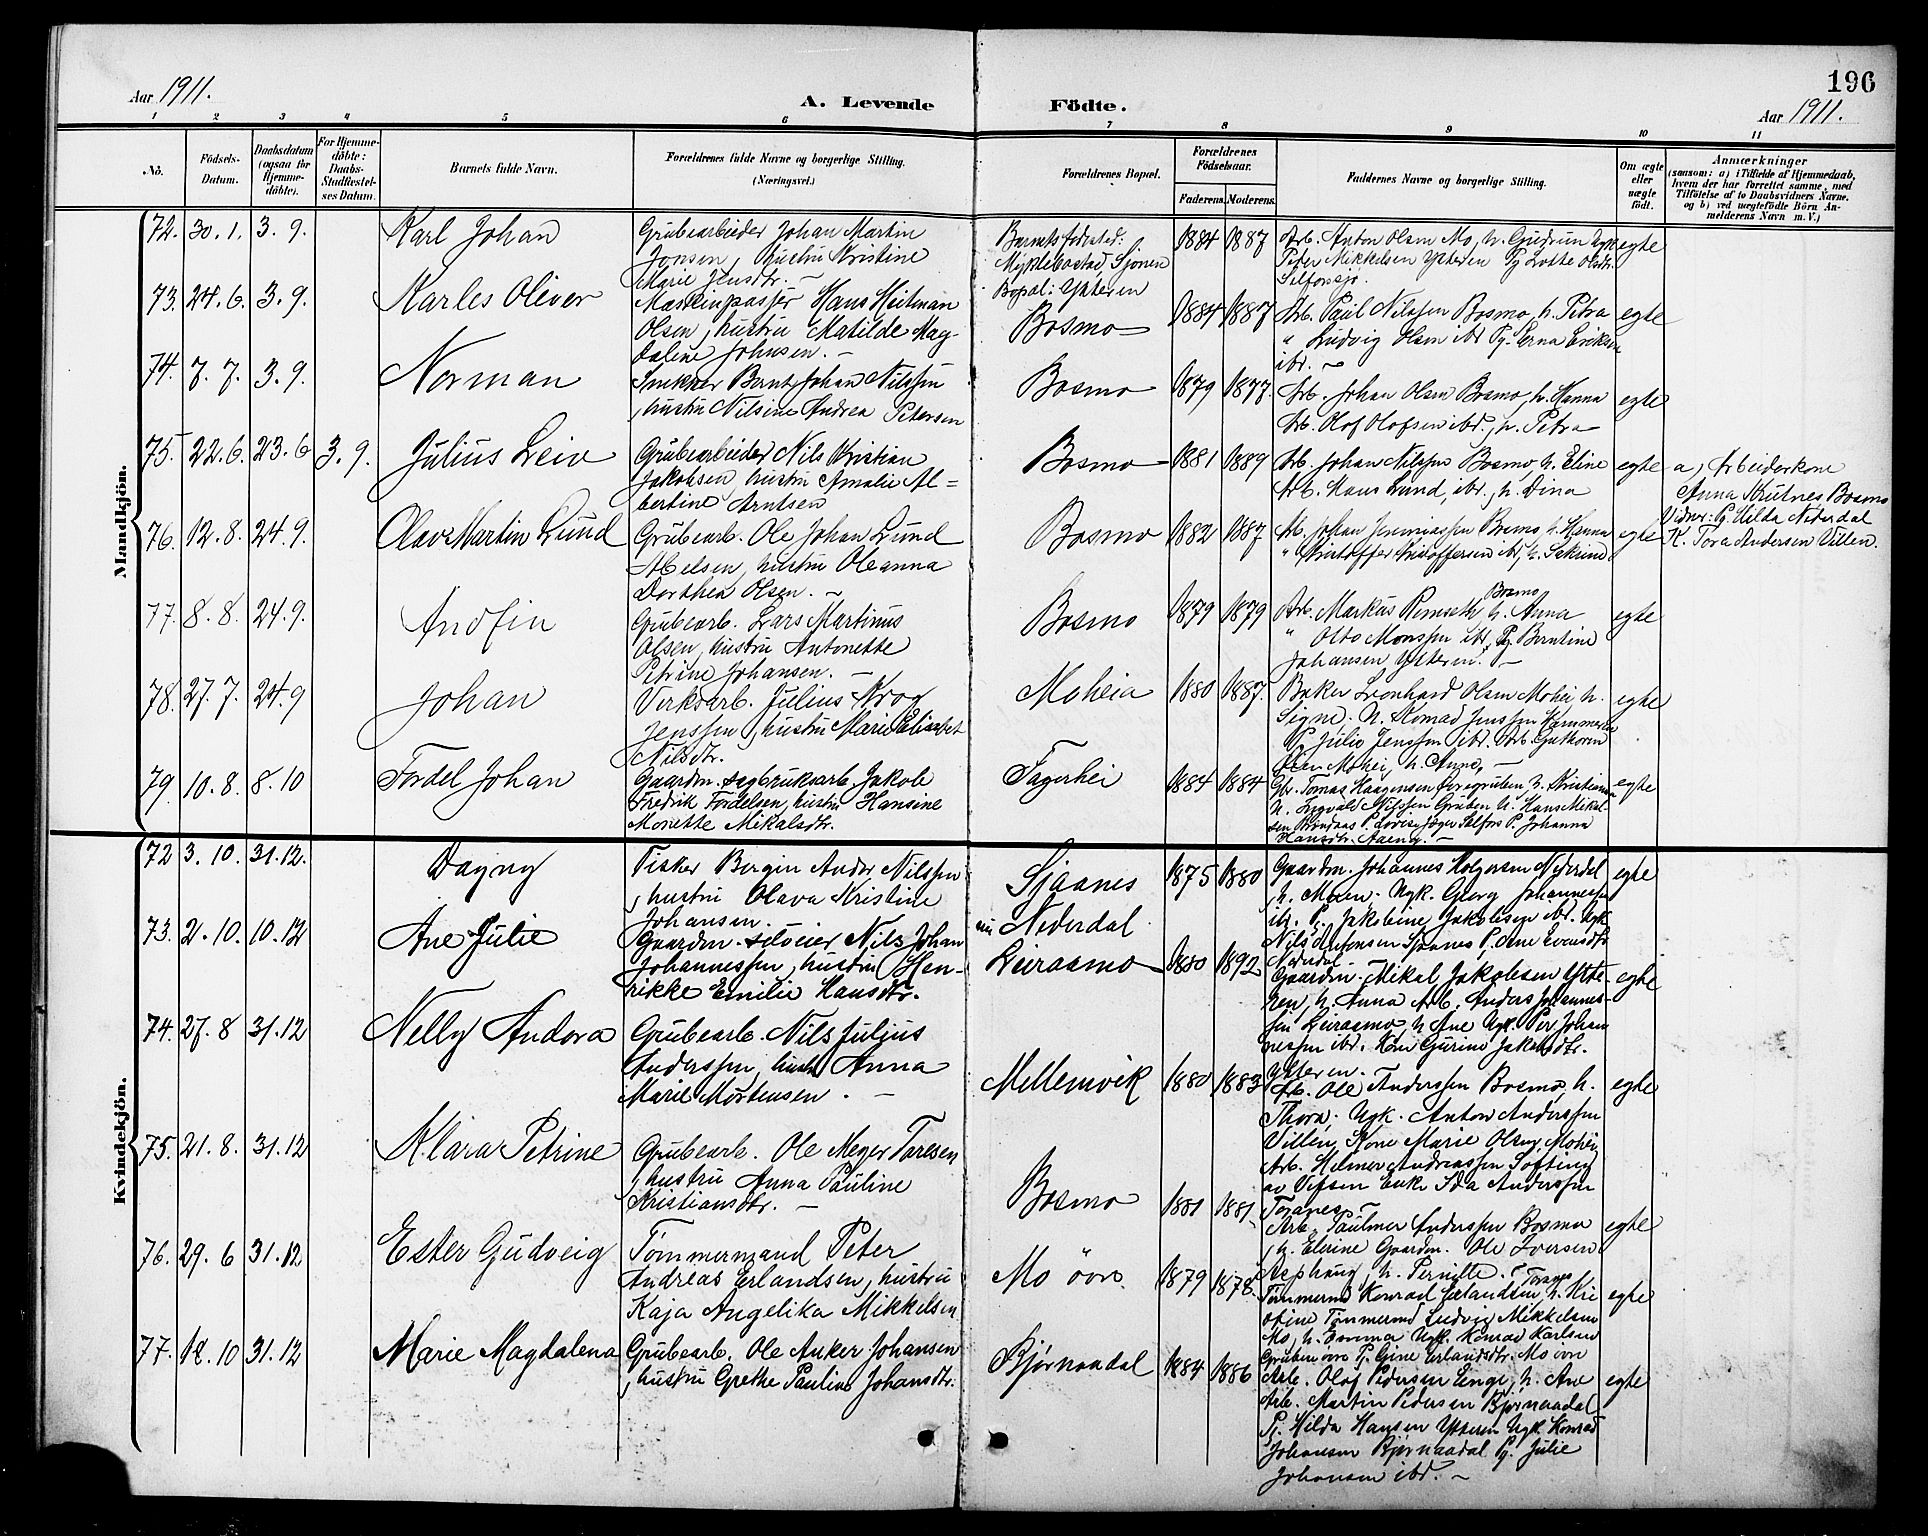 196
Aar 1911.
A. Levende Födte.
Aar 1911.
1 2 3 4 5 6 7 8 9 10 11
No.
Födsels-Datum.
Daabsdatum (ogsaa for Hjemmedöbte).
For Hjemmedöbte: Daabs-Stadfæstelses Datum.
Barnets fulde Navn.
Forældrenes fulde Navne og borgerlige Stilling.
(Næringsvei.)
Forældrenes Bopæl.
Forældrenes Födselsaar.
Faderens. Moderens.
Faddernes Navne og borgerlige Stilling.
Om ægte eller uægte födt.
Anmærkninger
(saasom: a) i Tilfælde af Hjemmedaab, hvem der har forrettet samme, med Tilföielse af to Daabsvidners Navne, og b) ved uægtefödte Börn Anmelderens Navn m. V.)
Mandkjön.
72. 30.1. 3.9. Karl Johan
Grubearbeider Johan Martin
Jonsen, hustru Kristine
Marie Jensdtr.
Barnets fødested:
Myklebostad, Sjonen
Bopæl: Ytteren
1884 1887
Arb. Anton Olsen Mo, h. Gudrun Ugk
Peter Mikkelsen Ytteren Pg Lotte Olsdtr.
Selforssjø.
egte
73. 24.6. 3.9. Karles Oliver
Maskinpasser Hans Heitman
Olsen, hustru Matilde Mag-
dalene Johnsen. —
Bosmo
1884 1887
Arb. Paul Nilssen Bosmo, h. Petra
" Ludvig Olsen ibd Pg. Erna Eriksen
ibd. —
egte
74. 7.7. 3.9. Norman
Snekker Bernt Johan Nilssen
, hustru Nilsine Andrea Petersen
Bosmo
1879 1877.
Arb. Johan Olsen Bosmo, h. Hanna
Arb. Olof Olofsen ibd., h. Petra
egte
75. 22.6. 23.6 3.9. Julius Leiv
Grubearbeider Nils Kristian
Jakobsen, hustru Amalie Al=
bertine Arntsen
Bosmo
1881 1889
Arb. Johan Nilssen Bosmo, h. Eline
Arb. Hans Lund, ibd., h. Dina
egte
a, Arbeiderkone
Anna Krutnes Bosmo
Vidner: Pg. Hilda Nederdal
K. Tora Andersen Villen.
76. 12.8. 24.9. Olav Martin Lund
Grubearb. Ole Johan Lund
Abelsen, hustru Oleanna
Dorthea Olsen. —
Bosmo
1882 1887
Arb. Johan Jeremiassen Bosmo h. Hanna
" Kristoffer Kristoffersen ibd, h.
egte
77. 8.8. 24.9. Andfin
Grubearb. Lars Martinus
Olsen, hustru Antonette
Petrine Johansen. —
Bosmo
1879 1879
Arb. Markus Remseth, Bosmo h. Anna
" Otto Monssen ibd, Pg. Berntine
Johansen Ytteren. —
egte
78. 27.7. 24.9 Johan
Verksarb. Julius Krog
Jenssen, hustru Marie Elisabet
Nilsdtr.
Moheia
1880 1887.
Baker Leonhard Olsen Mohei h.
Signe. h. Konrad Jenssen
Pg Julie Jenssen ibd. Arb.
Mohei, h. Anna, —
egte
79. 10.8. 8.10 Fordel Johan
Gaardm. sagbruksarb. Jakob
Fredrik Fordelsen, hustru Hansine
Monette Mikalsdtr.
Fagerhei
1884 1884
Gbr. Tomas Haagensen h. Kristianna
h. Sigvald Nilssen Gruben h. Hans Mikal-
sen P. Lovise Jæger Selfors P. Johanna
Hansdtr. Aaeng. —
egte
Kvindekjön.
72 3.10. 31.12. Dagny
Fisker Birgin Andor Nilssen
, hustru Olava Kristine
Johansen.
Sjaanes
nu Nederdal
1875 1880
Gaardm. Johannes Holgersen Nederdal
, h. Maren. Ugk. Georg Johannessen
ibd. P. Jakobine Jakobsen ibd. Ugk.
Nils Antonsen Sjaanes P. Ane Evensdtr
Nederdal.
egte
73. 2.10. 10.12 Ane Julie
Gaardm.-seloier Nils Johan
Johannessen, hustru Hen-
rikke Emilie Hansdtr.
Leiraamo
1880 1892
Gaardm. Mikal Jakobsen Ytte-
ren, h. Anna Arb. Anders Johannes-
sen Leiraamo, h Ane Ugk. Per Johan
nessen ibd. Kone Gurine Jakobsdtr.
Ytteren.
egte
74. 27.8 31.12 Nelly Andora
Grubearb. Nils Julius
Anderssen, hustru Anna
Marie Mortensen. —
Mellemvik
1880 1883
Arb. Ole Anderssen Bosmo, h.
Thora, Ugk. Anton Anderssen
Villen, Kone Marie Olsen, Mohei
Arb. Helmer Andreassen Søfting
av Vefsen Enke Ida Anderssen
Toranes —
egte
75. 21.8. 31.12 Klara Petrine
Grubearb. Ole Meyer Toresen
, hustru Anna Pauline
Kristiansdtr. —
Bosmo
1881 1881.
Arb. Paulmer Anderssen Bosmo
, h. Elerine Gaardm. Ole Iversen
Asphaug, h. Pernille.
egte
76. 29.6 31.12 Ester Gudveig
Tømmermand Peter
Andreas Erlandsen, hustru
Kaja Angelika Mikkelsen
Mo övre
1879 1878.
Tømmermd Konrad Erlandsen, Toranes h. Kri
stine Tømmermd Ludvig Mikkelsen
Mo, h. Emma Ugk. Konrad Karlsen
Gruben øvre Pg. Gine Erlandsdtr. Mo øvre
egte
77. 12.10 31.12 Marie Magdalena
Grubearb. Ole Anker Johansen
, hustru Grethe Pauline Johansdtr.
Bjørnaadal
1884 1886
Arb. Olof Pedersen Enge, h. Ane
Arb. Martin Pedersen Bjørnaadal
Pg. Hilda Hansen Ytteren Ugk. Konrad
Johansen Bjørnaadal Pg. Julie
Johansen ibd. —
egte